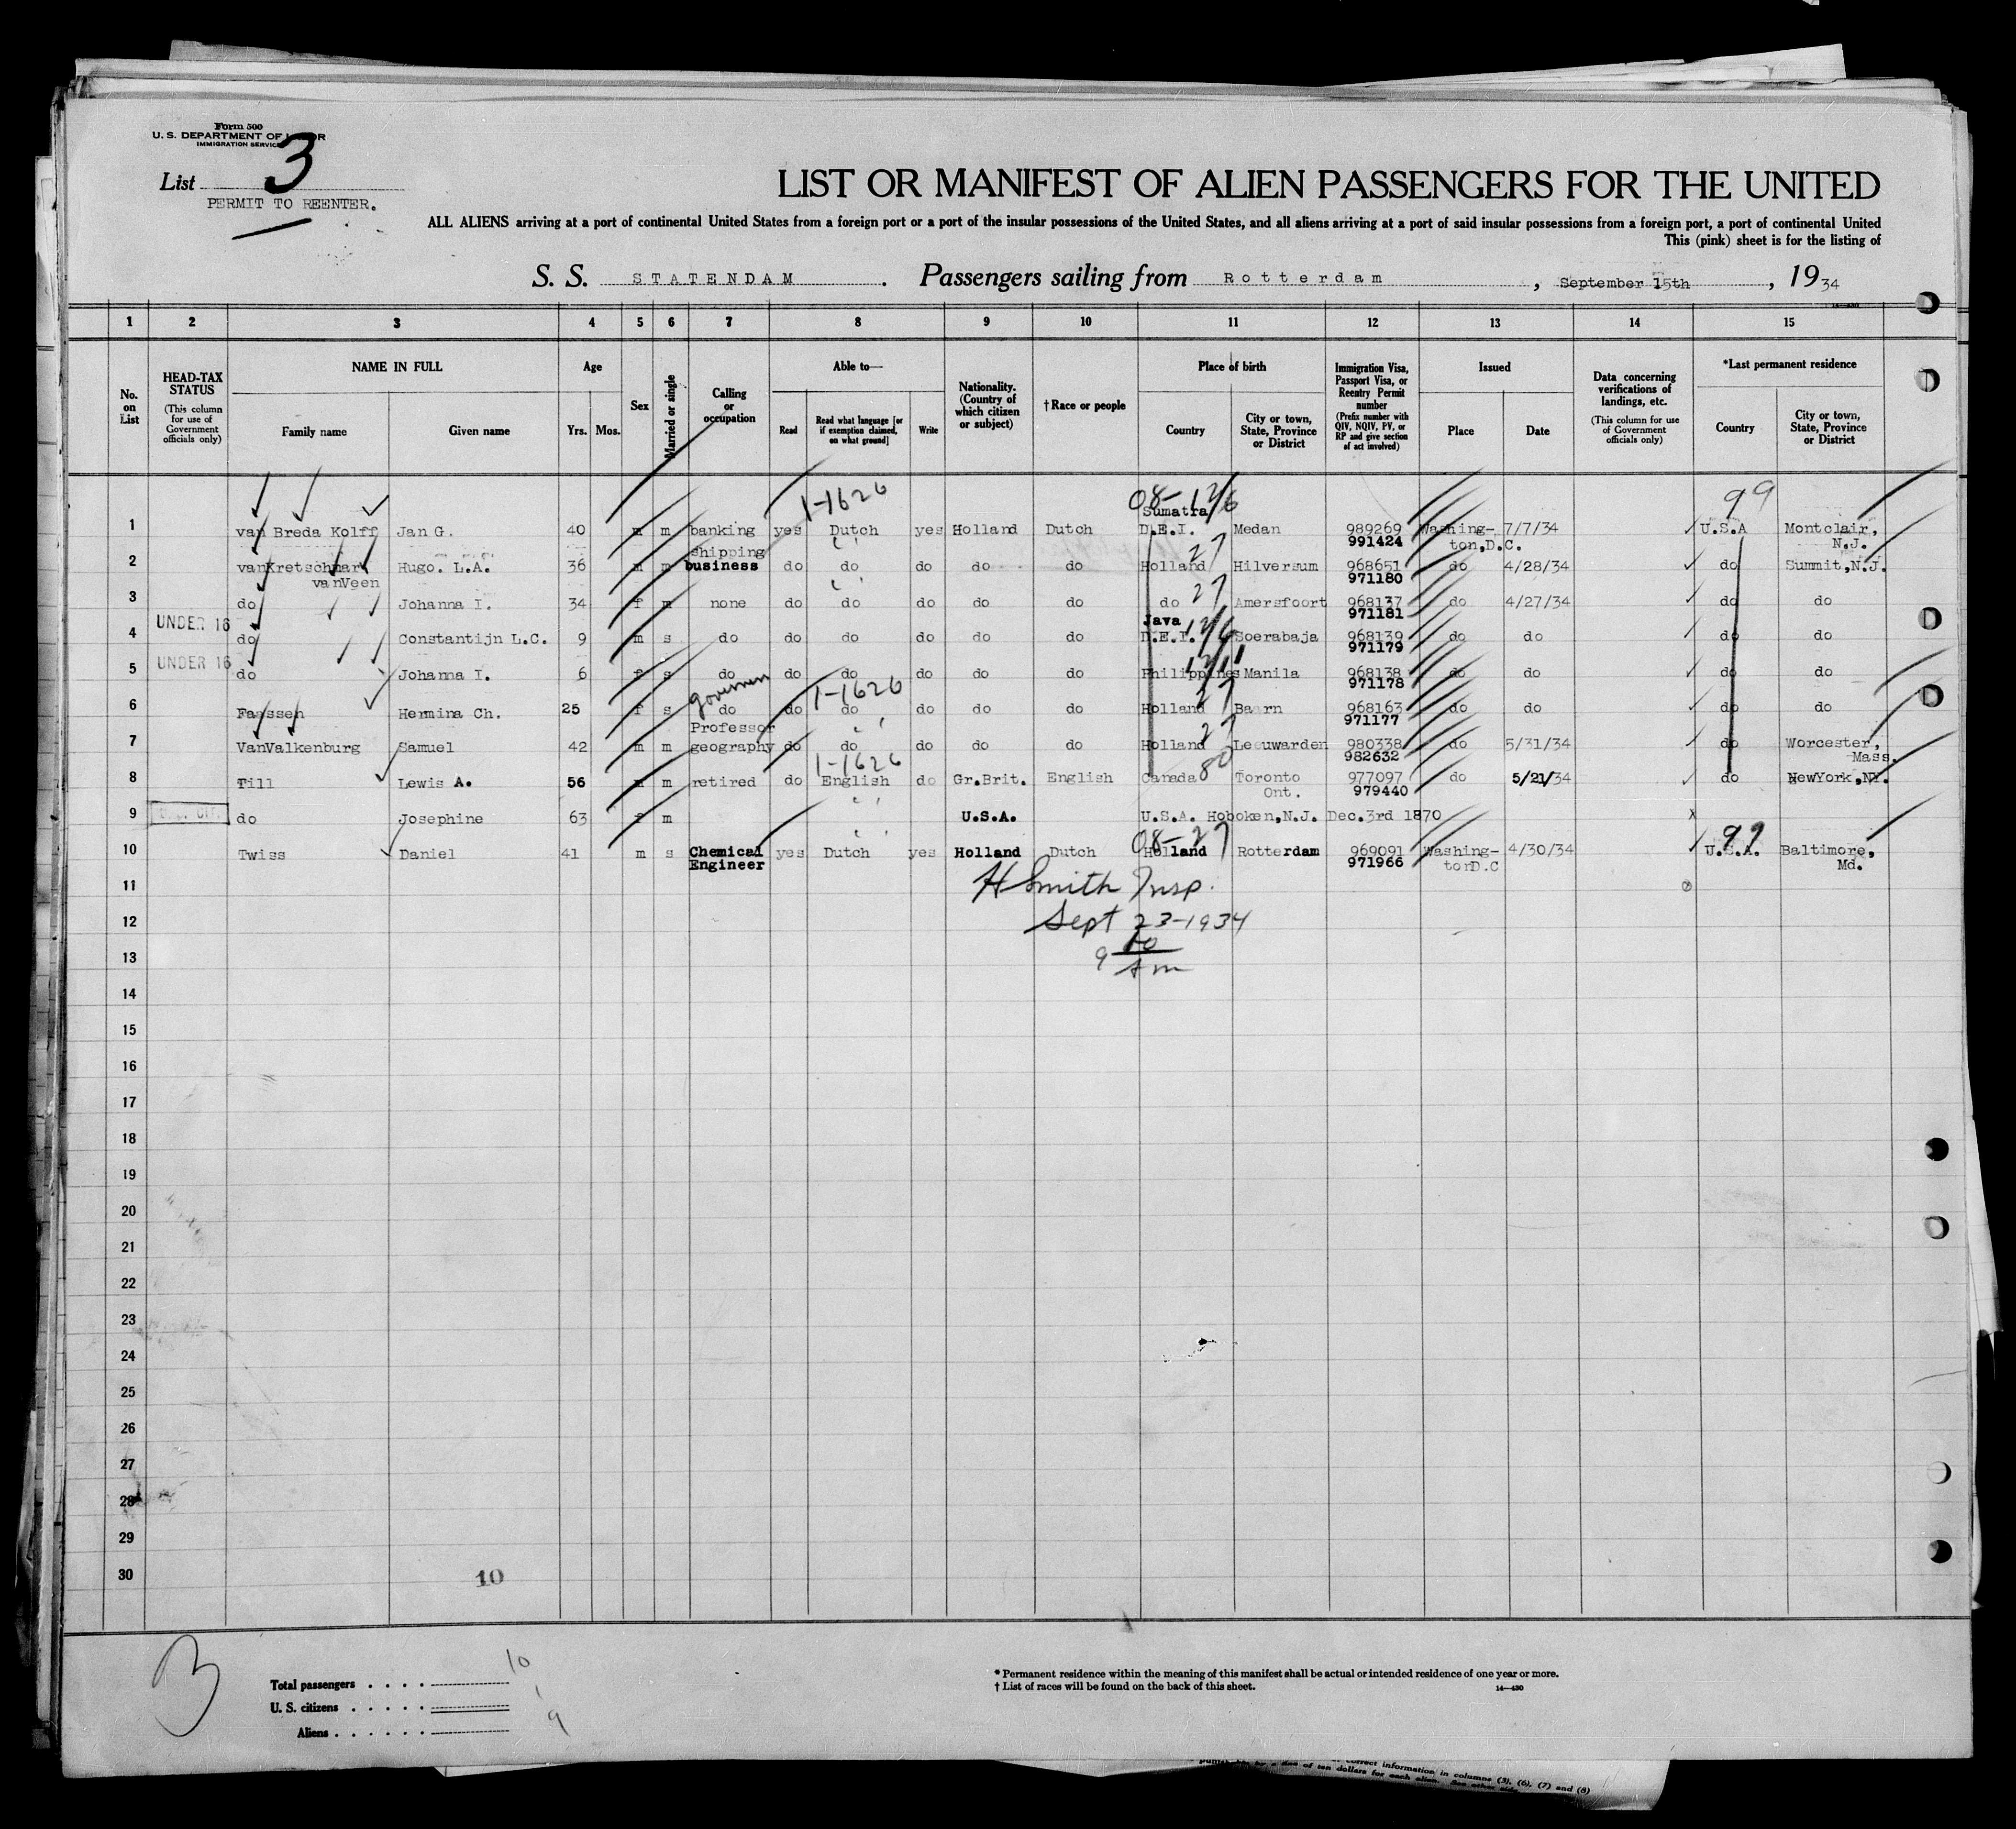 Form 500
U. S. DEPARTMENT OF LABOR
IMMIGRATION SERVICE
List 3
PERMIT TO REENTER.
LIST OR MANIFEST OF ALIEN PASSENGERS FOR THE UNITED
ALL ALIENS arriving at a port of continental United States from a foreign port or a port of the insular possessions of the United States, and all aliens arriving at a port of said insular possessions from a foreign port, a port of continental United
This (pink) sheet is for the listing of
S. S. STATENDAM. Passengers sailing from Rotterdam, September 15th, 1934
14-430
1 2 3 4 5 6 7 8 9 10 11 12 13 14 15
No. on List
HEAD-TAX STATUS (This column for use of Government officials only)
NAME IN FULL Family name Given name
Age Yrs. Mos.
Sex
Married or single
Calling or occupation
Able to— Read Read what language [or if exemption claimed, on what ground] Write
Nationality. (Country of which citizen or subject)
† Race or people
Place of birth Country City or town, State, Province or District
Immigration Visa, Passport Visa, or Reentry Permit number (Prefix number with QIV, NQIV, PV, or RP and give section of act involved)
Issued Place Date
Data concerning verifications of landings, etc. (This column for use of Government officials only)
*Last permanent residence Country City or town, State, Province or District
1-1626 08-12/6 99
Sumatra
1 van Breda Kolff Jan G. 40 m m banking yes Dutch yes Holland Dutch D.E.I. Medan 989269 Washing- 7/7/34 U.S.A Montclair,
991424 ton,D.C. N.J.
shipping 27
2 vanKretschmar Hugo. L.A. 36 m m business do do do do do Holland Hilversum 968651 do 4/28/34 do Summit,N.J.
vanVeen 971180
3 do Johanna I. 34 f m none do do do do do do 27 Amersfoort 968137 do 4/27/34 do do
971181
UNDER 16 Java 12/6
4 do Constantijn L.C. 9 m s do do do do do do D.E.I. Soerabaja 968139 do do do do
971179
UNDER 16 12/11
5 do Johanna I. 6 f s do do do do do do Philippines Manila 968138 do do do do
971178
governess 1-1626 27
6 Faassen Hermina Ch. 25 f s do do do do do do Holland Baarn 968163 do do do do
971177
Professor 27
7 VanValkenburg Samuel 42 m m geography do do do do do Holland Leeuwarden 980338 do 5/31/34 do Worcester,
982632 Mass.
1-1626 80
8 Till Lewis A. 56 m m retired do English do Gr.Brit. English Canada Toronto 977097 do 5/21/34 do NewYork,NY.
Ont. 979440
U.S. CIT.
9 do Josephine 63 f m U.S.A. U.S.A. Hoboken,N.J. Dec.3rd 1870 x
08-27 99
10 Twiss Daniel 41 m s Chemical yes Dutch yes Holland Dutch Holland Rotterdam 969091 Washing- 4/30/34 U.S.A. Baltimore,
Engineer 971966 tonD.C Md.
11 H Smith Insp.
12 Sept 23-1934
13 9 am
14
15
16
17
18
19
20
21
22
23
24
25
26
27
28
29
30
10
3
Total passengers . . . . 10
U. S. citizens . . . . . 1
Aliens . . . . . . 9
* Permanent residence within the meaning of this manifest shall be actual or intended residence of one year or more.
† List of races will be found on the back of this sheet. 14—430
correct information in columns (3), (6), (7) and (8)
of ten dollars for each alien. See other side.